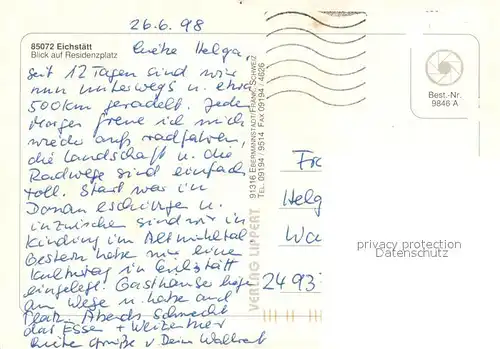 26.6.98
85072 Eichstätt
Blick auf Residenzplatz
Liebe Helga,
seit 12 Tagen sind wir
nun unterwegs u. etwa
500km geradelt. Jeden
Morgen freue ich mich
wieder aufs radfahren,
die Landschaft u. die
Radwege sind einfach
toll. Start war in
Donaueschingen u.
inzwischen sind wir in
Kinding im Altmühltal
Gestern haben wir eine
Kulturtag in Eichstätt
eingelegt. Gasthäuser
am Wege u. haben auch
Platz. Abends schmeckt
das Essen + Weizenbier
Liebe Grüße v. Dein
VERLAG LIPPERT
91316 EBERMANNSTADT/FRÄNK. SCHWEIZ
TEL. 09194 / 9514 FAX 09194 / 4026
Best.-Nr.
9846 A
Fr
Helg
Wa
2493
privacy protection
Datenschutz